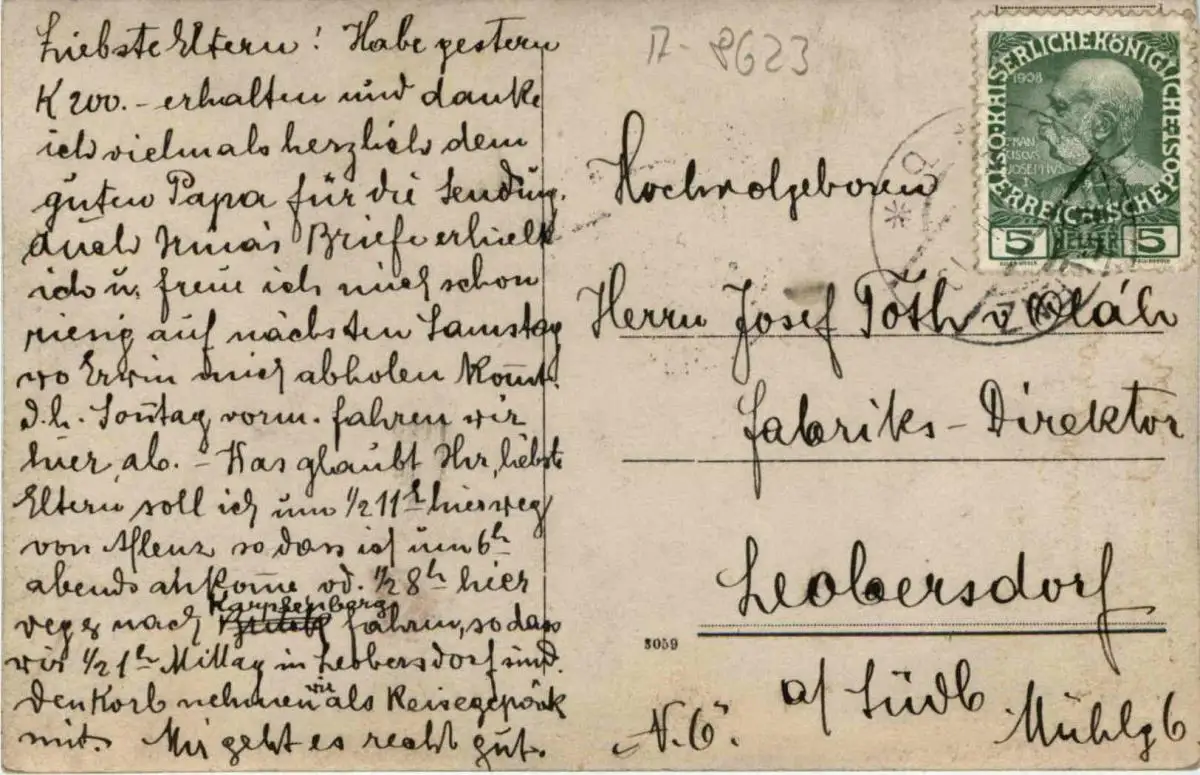 Liebste Eltern! Habe gestern
K 200.- erhalten und danke
ich vielmals herzlich dem
guten Papa für die Sendung.
Auch Irma's Briefe erhielt
ich u. freue ich mich schon
riesig auf nächsten Samstag
wo Erwin mich abholen kom̄t.
d.h. Son̄tag vorm. fahren wir
hier ab. - Was glaubt Ihr, liebste
Eltern soll ich um 1/2 11h hierweg
von Aflenz so dass ich um 6h
abends ankom̄e od. 1/2 8h hier
weg nach Kapfenberg fahren, so dass
wir 1/2 1h Mittag in Leobersdorf sind.
Den Korb nehmen wir als Reisegepäck
mit. Mir geht es recht gut.
A-8623
KAISERLICHE KÖNIGLICHE ÖSTERREICHISCHE POST
1908
FRAN
CISCUS
JOSEPHUS
5 HELLER 5
Hochwolgeboren
Herrn Josef Tóth v. Oláh
Fabriks-Direktor
Leobersdorf
3059
a/ Südb
N. 6.
Mühlg 6